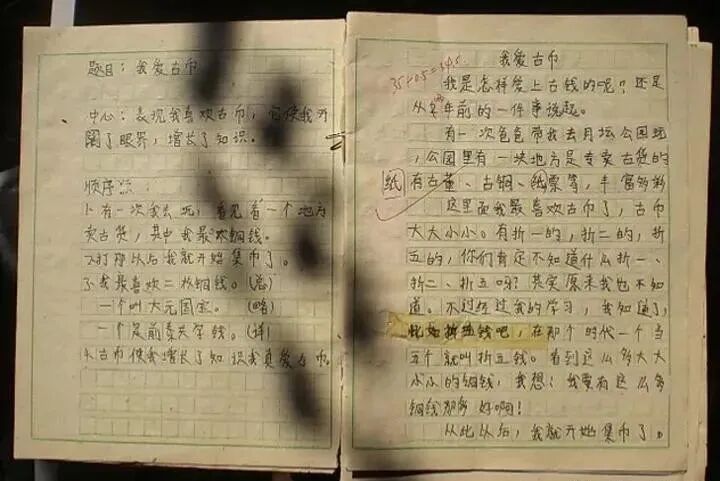 题目：我爱古币
中心：表现我喜欢古币，它使我开
阔了眼界，增长了知识。
顺序：
1、有一次我去玩，看见着一个地方
卖古货，其中我最欢铜钱。
2、打那以后我就开始集币了。
3、我最喜欢二枚铜钱。(总)
一个叫大元国宝。(略)
一个是前秦关字钱。(详)
4、古币使我增长了知识我真爱古币。
我爱古币
我是怎样爱上古钱的呢？还是
从年前的一件事说起。
有一次爸爸带我去月坛公园玩
，公园里有一块地方是专卖古货的
纸
有古董、古铜、纸票等，丰富多彩
这里面我最喜欢古币了，古币
大大小小。有折一的，折二的，折
五的，你们肯定不知道什么折一、
折二、折五呀？其实原来我也不知
道。不过经过我的学习，我知道了，
比如折五钱吧，在那个时代一个当
五个就叫折五钱。看到这么多大大
小小的铜钱，我想：我要有这么多
铜钱那多好啊！
从此以后，我就开始集币了。